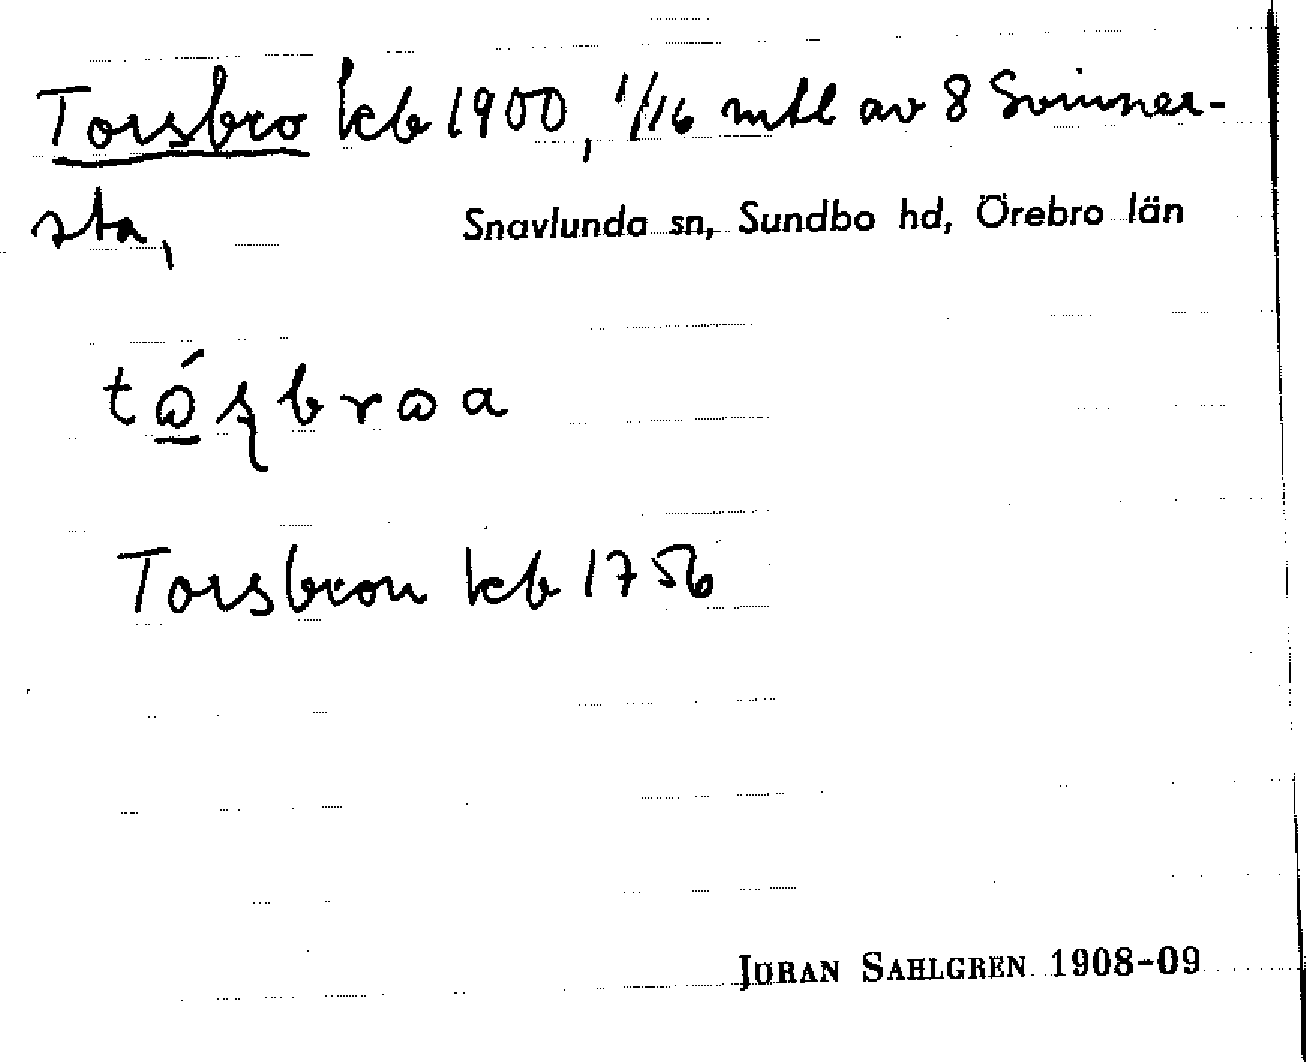 Torsbro kb 1900, 1/16 mtl av 8 Svinner-
sta, Snavlunda sn, Sundbo hd, Örebro län
Torsbron kb 1756
JÖRAN SAHLGREN 1908-09